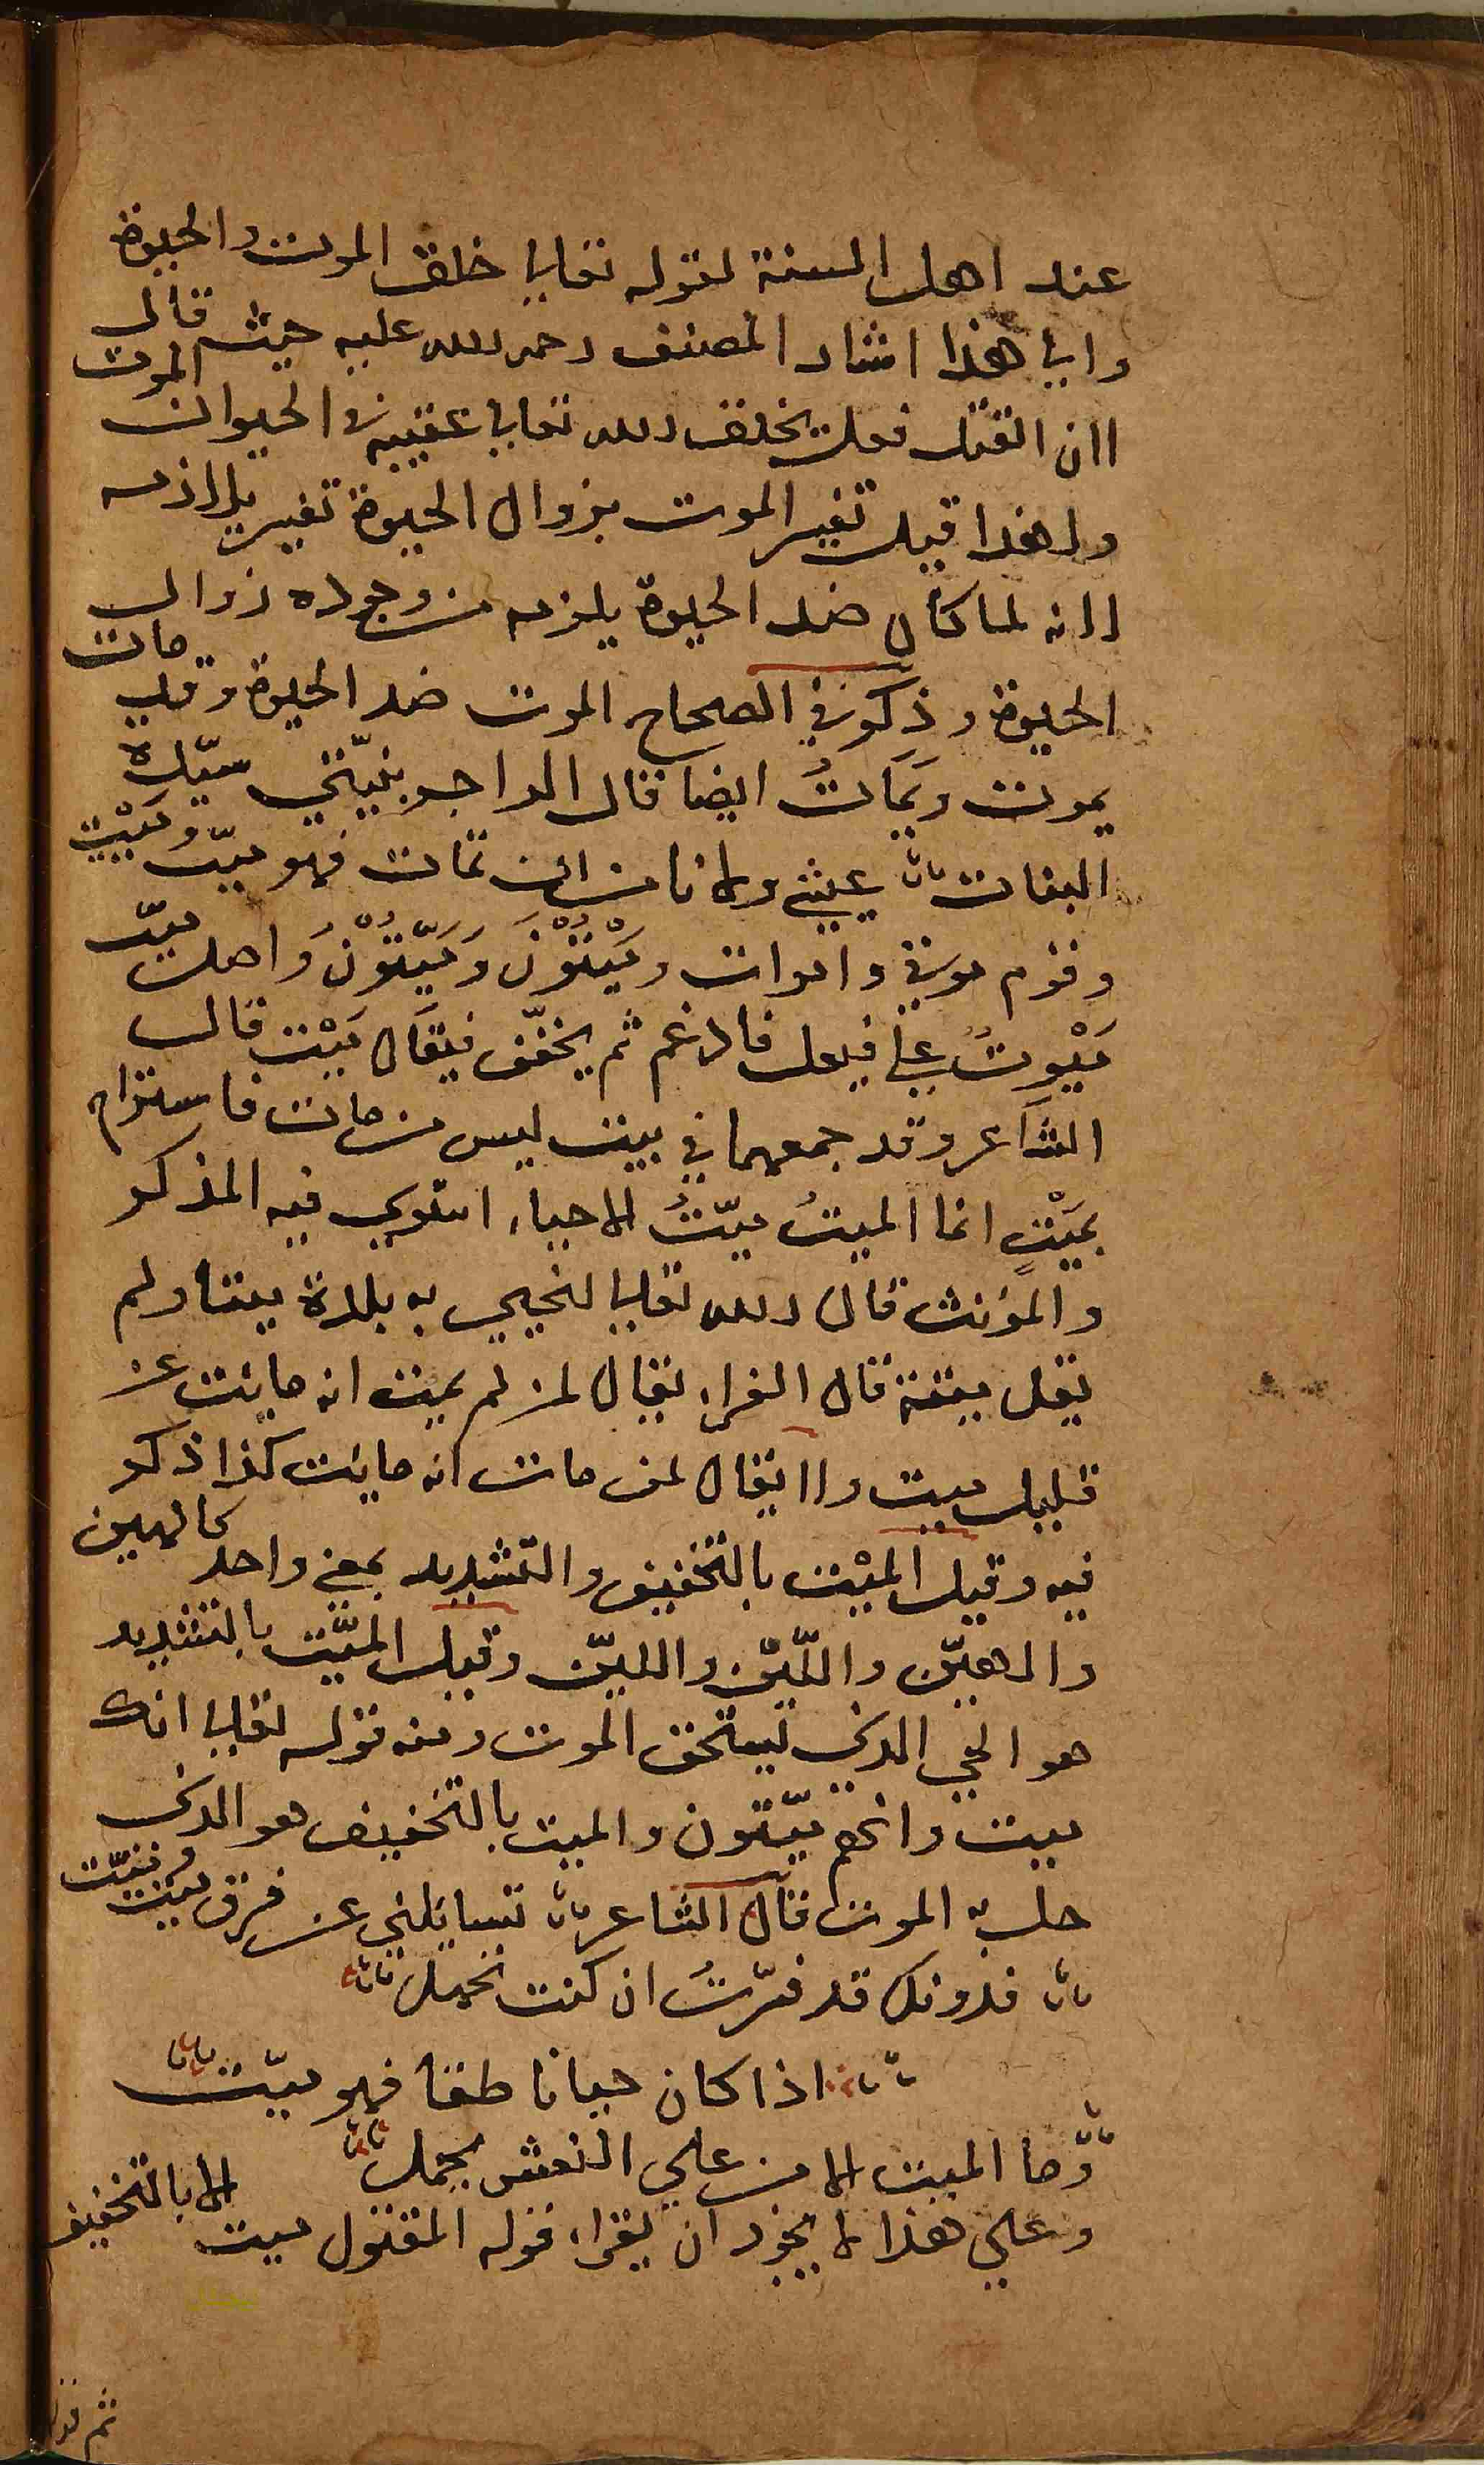 عند اهل السنة لقوله تعالى خلق الموت والحيوة
والى هذا اشار المصنف رحمه الله عليه حيث قال
اان القتل فعل يخلق الله تعالى عقيبه في الحيوان الموت
ولهذا قيل تفسير الموت بزوال الحيوة تفسير بلازمه
لانه لما كان ضد الحيوة يلزمه من وجوده زوال
الحيوة وذكر في الصحاح الموت ضد الحيوة وقد مات
يموت ويَمَاتُ ايضا قال الراجز بنيّتي سيّدة
البنات عيشي ولا نامن ان تمات فهو ميّت ومَيْت
وقوم موتى واموات ومَيْتُوْنَ وَمَيِّتُوْنَ وَاصل ميّت
مَيْوِتٌ على فيعل فادغم ثم يخفّف فيقال مَيْت قال
الشاعر وقد جمعهما في بيت ليس من مات فاستراح
بمَيْتٍ انما الميتُ ميّتُ الاحياء استوى فيه المذكر
والمؤنث قال الله تعالى لنحيي به بلدة ميتا ولم
يقل ميتة قال الفراء يقال لمن لم يمت انه مائت عن
قليل ميت ولا يقال لمن مات انه مائت كذا ذكر
فيه وقيل الميْت بالتخفيف والتشديد بمعنى واحد كالهين
والهيّن واللّيْن والليّن وقيل الميّت بالتشديد
هو الحي الذي يستحق الموت ومنه قوله تعالى انك
ميت وانهم ميّتون والميت بالتخفيف هو الذي
حل به الموت قال الشاعر تسائلني عن فرق ميت وميّت
فدونك قد فسّرتُ ان كنت تحمل
اذا كان حيا ناطقا فهو ميّت
وما الميت الا من على النعش يحمل
وعلى هذا لا يجوز ان يقراء قوله المقتول ميت الا بالتخفيف
ثم قوله